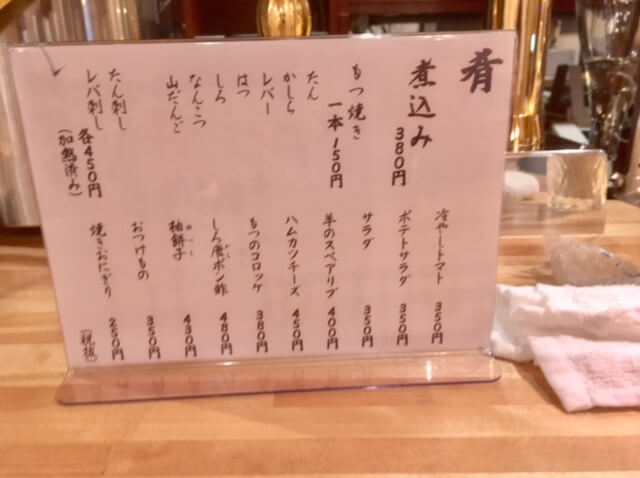 肴
煮込み
380円
もつ焼き
一本150円
たん
かしら
レバー
はつ
しろ
なんこつ
山だんご
たん刺し
レバ刺し
各450円
(加熱済み)
冷やしトマト 350円
ポテトサラダ 350円
サラダ 350円
羊のスペアリブ 400円
ハムカツチーズ 450円
もつのコロッケ 380円
しろ唐ポン酢 480円
柚餅子 430円
おつけもの 350円
焼きおにぎり 250円
(税抜)